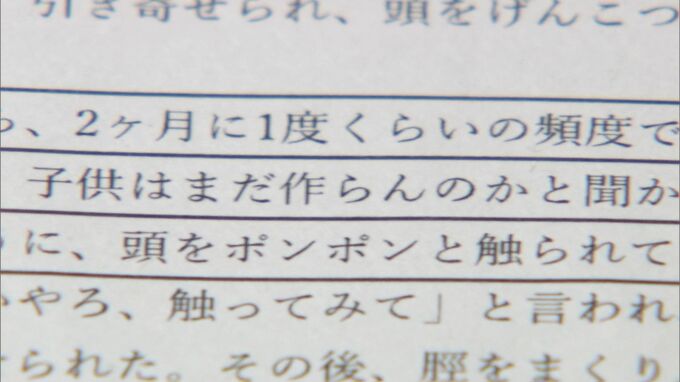 引き寄せられ、頭をげんこつ
、2ヶ月に1度くらいの頻度で
子供はまだ作らんのかと聞か
に、頭をポンポンと触られて
やろ、触ってみて」と言われ
られた。その後、脛をまくり